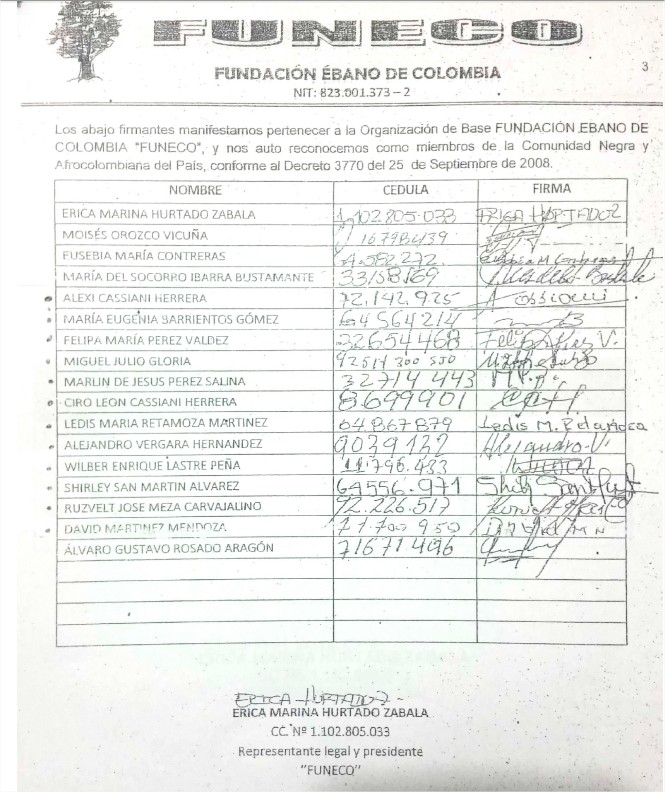 FUNECO
FUNDACIÓN ÉBANO DE COLOMBIA
3
NIT: 823.001.373 – 2
Los abajo firmantes manifestamos pertenecer a la Organización de Base FUNDACIÓN EBANO DE
COLOMBIA "FUNECO", y nos auto reconocemos como miembros de la Comunidad Negra y
Afrocolombiana del País, conforme al Decreto 3770 del 25 de Septiembre de 2008.
NOMBRE CEDULA FIRMA
ERICA MARINA HURTADO ZABALA 1.102.805.033 ERICA HURTADOZ
MOISÉS OROZCO VICUÑA
EUSEBIA MARÍA CONTRERAS
MARÍA DEL SOCORRO IBARRA BUSTAMANTE 33158169
ALEXI CASSIANI HERRERA 72.142.925 A Cassiani
MARÍA EUGENIA BARRIENTOS GÓMEZ 64564214
FELIPA MARÍA PEREZ VALDEZ 32654468
MIGUEL JULIO GLORIA
MARLIN DE JESUS PEREZ SALINA 32714443
CIRO LEON CASSIANI HERRERA 8.699901
LEDIS MARIA RETAMOZA MARTINEZ 64.867879 Ledis M. Retamoza
ALEJANDRO VERGARA HERNANDEZ 9039132 Alejandro.V.
WILBER ENRIQUE LASTRE PEÑA 11796.433
SHIRLEY SAN MARTIN ALVAREZ 64556.971
RUZVELT JOSE MEZA CARVAJALINO 92.226.517
DAVID MARTINEZ MENDOZA
ÁLVARO GUSTAVO ROSADO ARAGÓN 71671496
ERICA HURTADOZ
ERICA MARINA HURTADO ZABALA
CC. Nº 1.102.805.033
Representante legal y presidente
"FUNECO"